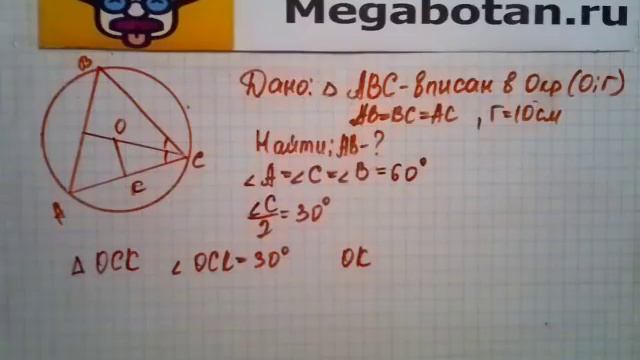 Megabotan.ru
Дано: △ ABC-вписан в Окр (O; r)
AB=BC=AC , r=10см
Найти; AB-?
∠A=∠C=∠B=60°
∠C/2=30°
△ OCK ∠ OCK=30° OK
B
O
C
K
A